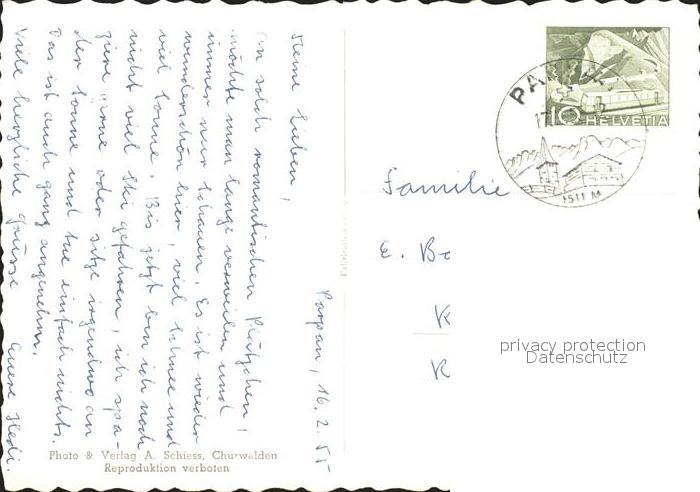 Parpan, 16. 2. 55
Meine Lieben,
An solch romantischen Plätzchen
möchte man lange verweilen und
immer nur schauen. Es ist wieder
wunderschön hier, viel Schnee und
viel Sonne. Bis jetzt bin ich noch
nicht viel Ski gefahren, ich spa-
ziere gerne oder sitze irgendwo an
der Sonne und tue einfach nichts.
Das ist auch ganz angenehm.
Viele herzliche Grüsse Eure Hedi.
Photo & Verlag A. Schiess, Churwalden
Reproduktion verboten
PARPAN
17
1511 M
10 HELVETIA
Familie
E. Bo
K
K
privacy protection
Datenschutz